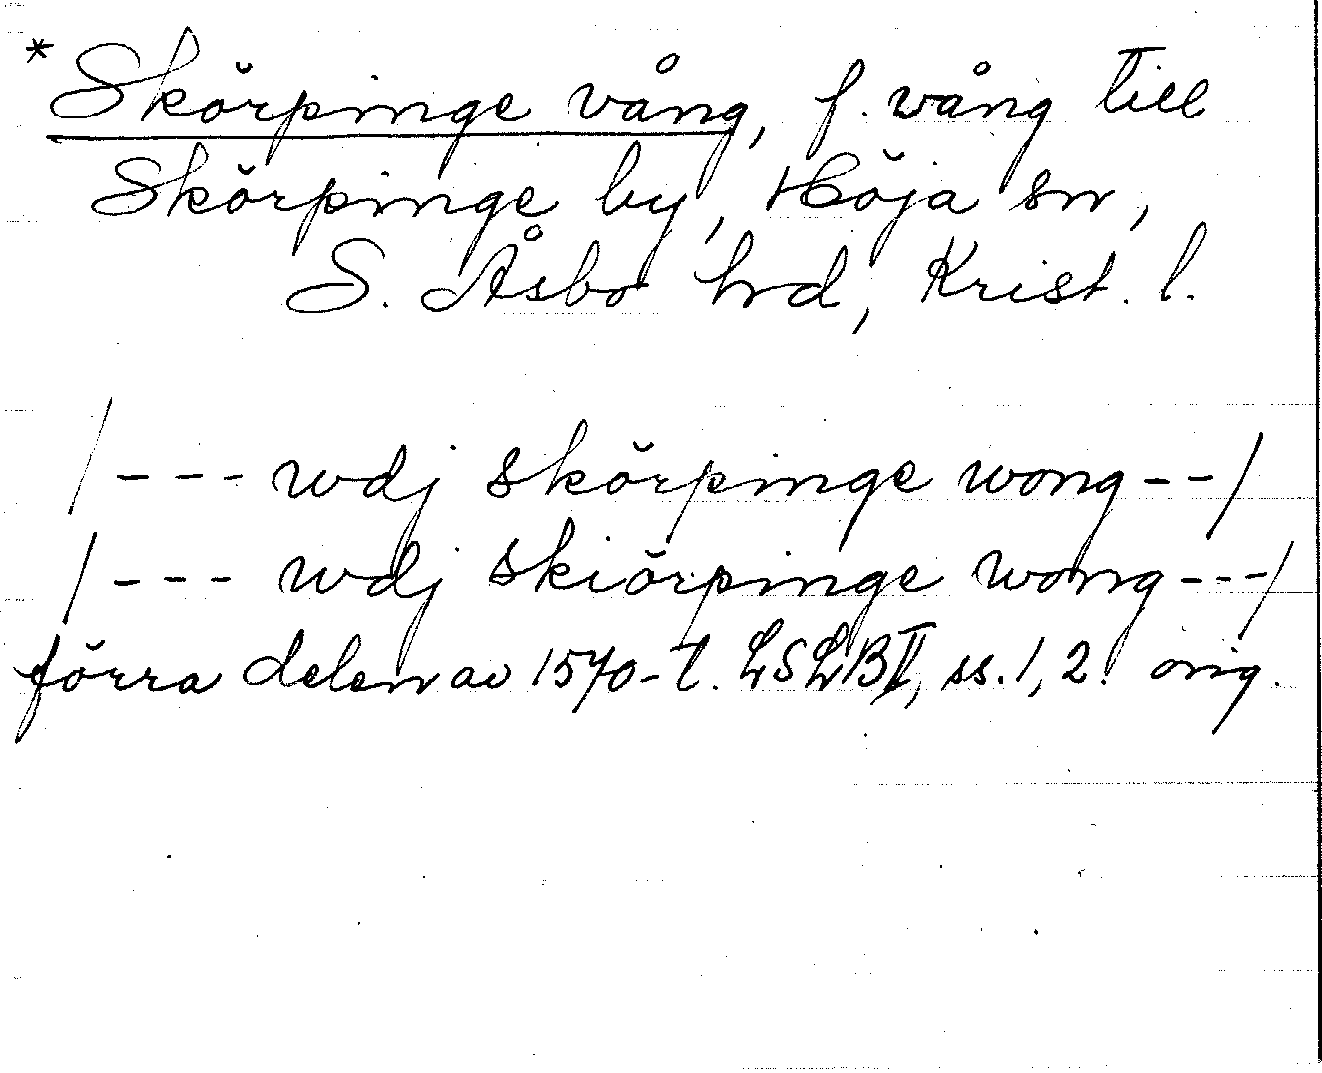 * Skörpinge vång, f. vång till
Skörpinge by, Höja sn,
S. Åsbo hd, Krist. l.
/--- wdj skörpinge wong--/
/--- wdj skiörpinge wong---/
förra delen av 1570-t. LSLB II, ss. 1, 2. orig.